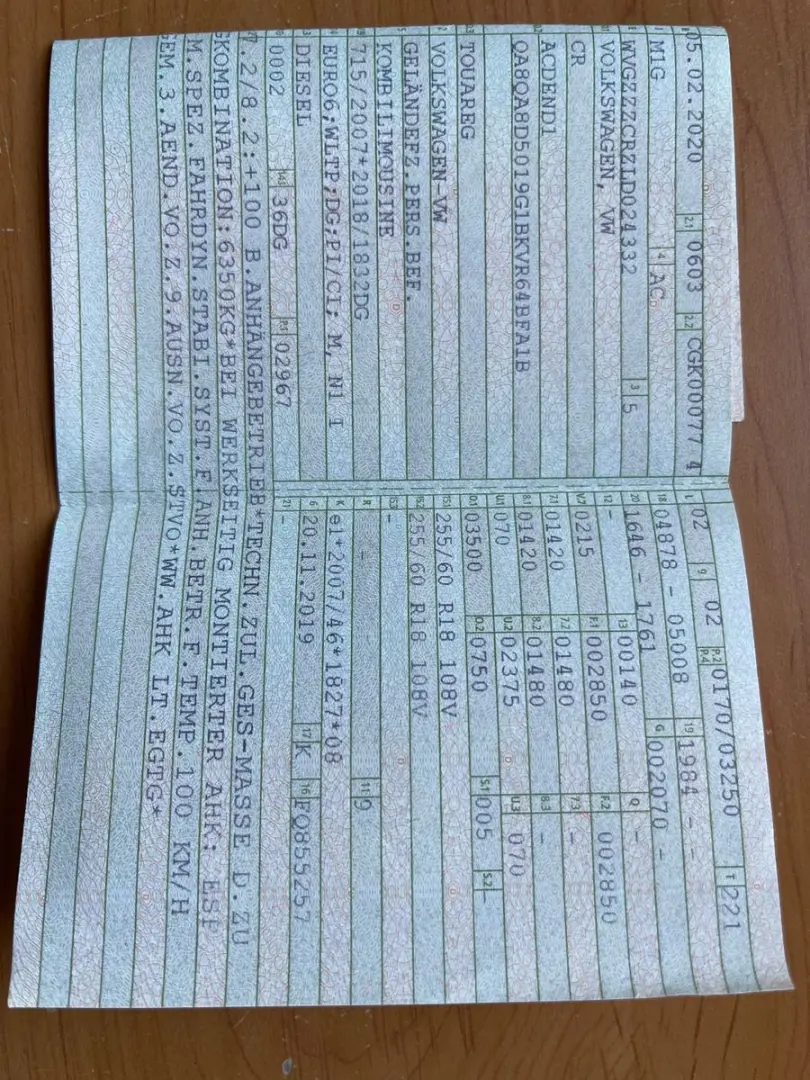 05.02.2020 2.1 0603 2.2 CGK00077 4
M1G 4 AC
WVGZZZCRZLD024332 3 5
VOLKSWAGEN, VW
CR
ACDEND1
QA8QA8D5019G1BKVR64BFA1B
TOUAREG
2 VOLKSWAGEN-VW
5 GELÄNDEFZ.PERS.BEF.
KOMBILIMOUSINE
715/2007*2018/1832DG
EURO6;WLTP;DG;PI/CI; M, N1 I
DIESEL
0002 14.1 36DG P.1 02967
L 02 9 02 P.2 P.4 0170/03250 T 221
18 04878 - 05008 19 1984 - -
20 1646 - 1761 G 002070 -
12 - 13 00140 Q -
V.7 0215 F.1 002850 F.2 002850
7.1 01420 7.2 01480 7.3 -
8.1 01420 8.2 01480 8.3 -
U.1 070 U.2 02375 U.3 070
O.1 03500 O.2 0750 S.1 005 S.2 -
15.1 255/60 R18 108V
15.2 255/60 R18 108V
15.3 -
R - 11 9
K e1*2007/46*1827*08
6 20.11.2019 17 K 16 FQ855257
21 -
7.2/8.2:+100 B.ANHÄNGEBETRIEB*TECHN.ZUL.GES-MASSE D.ZU
GKOMBINATION:6350KG*BEI WERKSEITIG MONTIERTER AHK: ESP
M.SPEZ.FAHRDYN.STABI.SYST.F.ANH.BETR.F.TEMP.100 KM/H
GEM.3.AEND.VO.Z.9.AUSN.VO.Z.STVO*WW.AHK LT.EGTG*